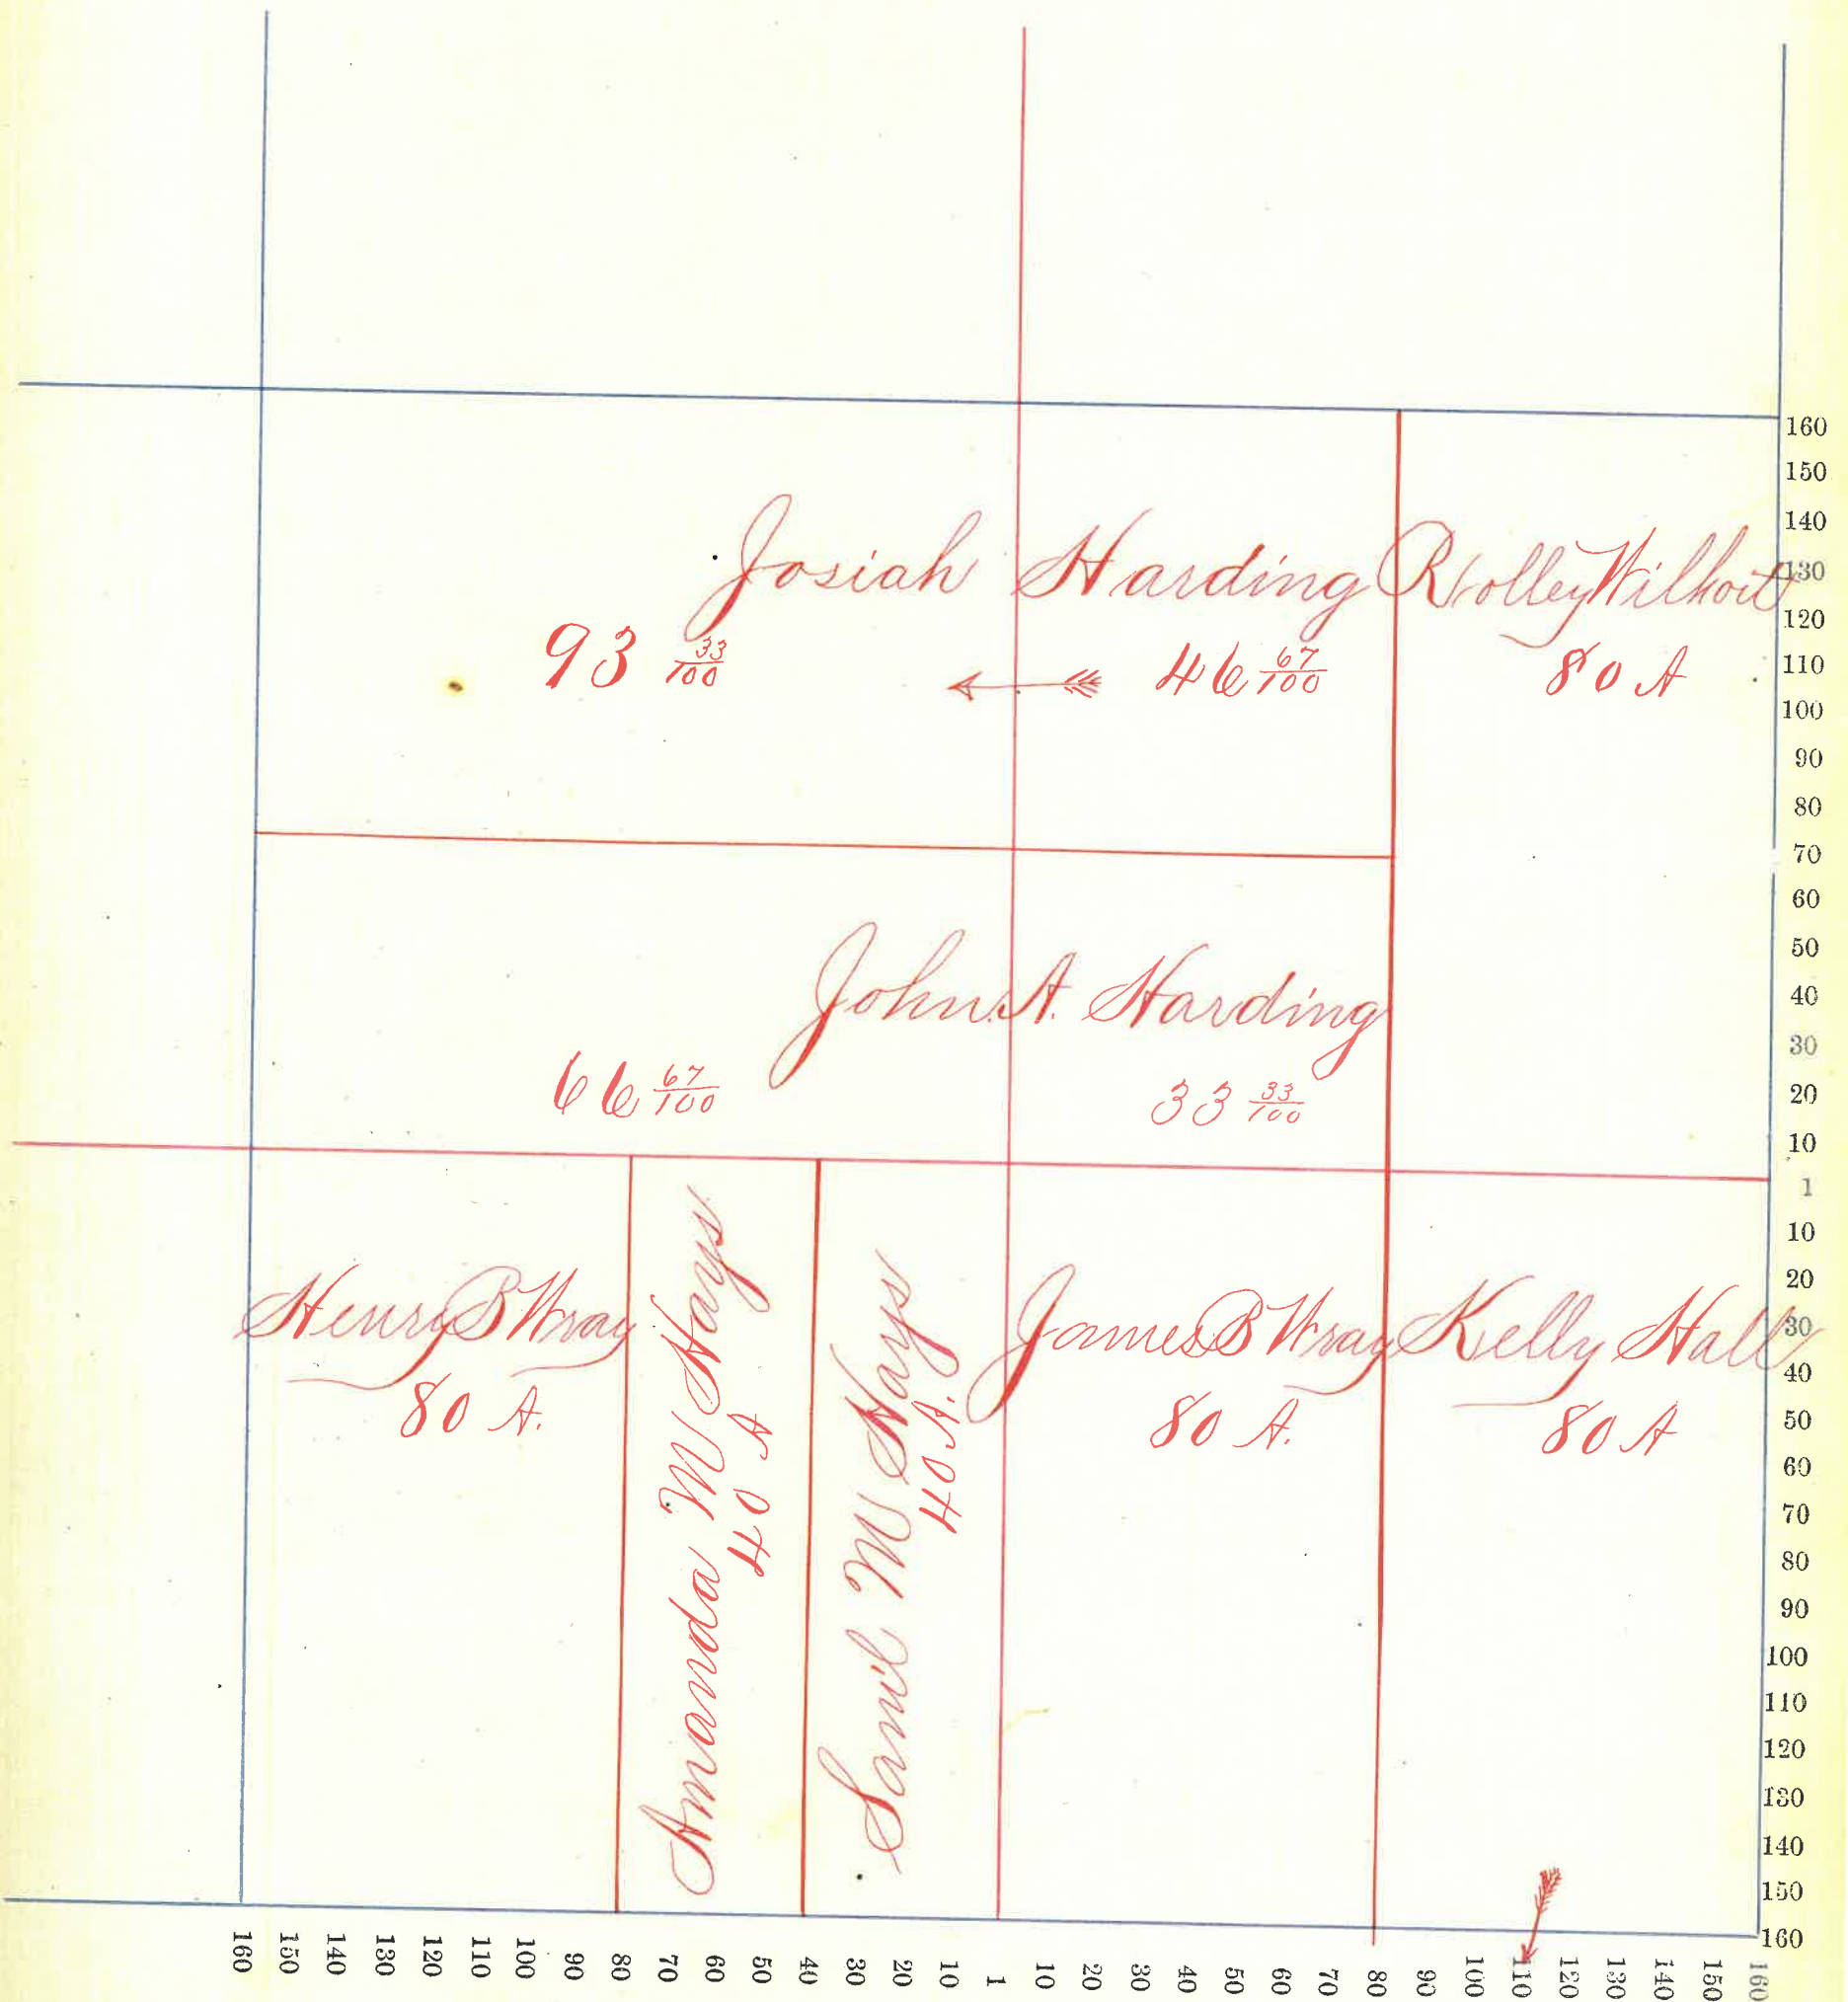 Josiah Harding
93 33/100
46 67/100
Rolley Wilhoit
80 A
John A. Harding
66 67/100
33 33/100
Henry B Wray
80 A.
Amanda M Hays
40 A
Saml M Hays
40 A.
James B Wray
80 A.
Kelly Hall
80 A
160
150
140
130
120
110
100
90
80
70
60
50
40
30
20
10
1
10
20
30
40
50
60
70
80
90
100
110
120
130
140
150
160
160 150 140 130 120 110 100 90 80 70 60 50 40 30 20 10 1 10 20 30 40 50 60 70 80 90 100 110 120 130 140 150 160